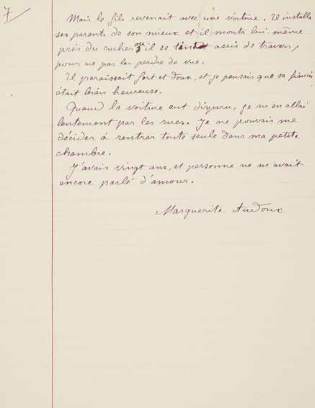 7
Mais le fils revenait avec une voiture. Il installa
ses parents de son mieux et il monta lui même
près du cocher il se tint assis de travers,
pour ne pas les perdre de vue.
Il paraissait fort et doux, et je pensais que sa fiancée
était bien heureuse.
Quand la voiture eut disparu, je m'en allai
lentement par les rues. Je ne pouvais me
décider à rentrer toute seule dans ma petite
chambre.
J'avais vingt ans, et personne ne m'avait
encore parlé d'amour.
Marguerite Audoux